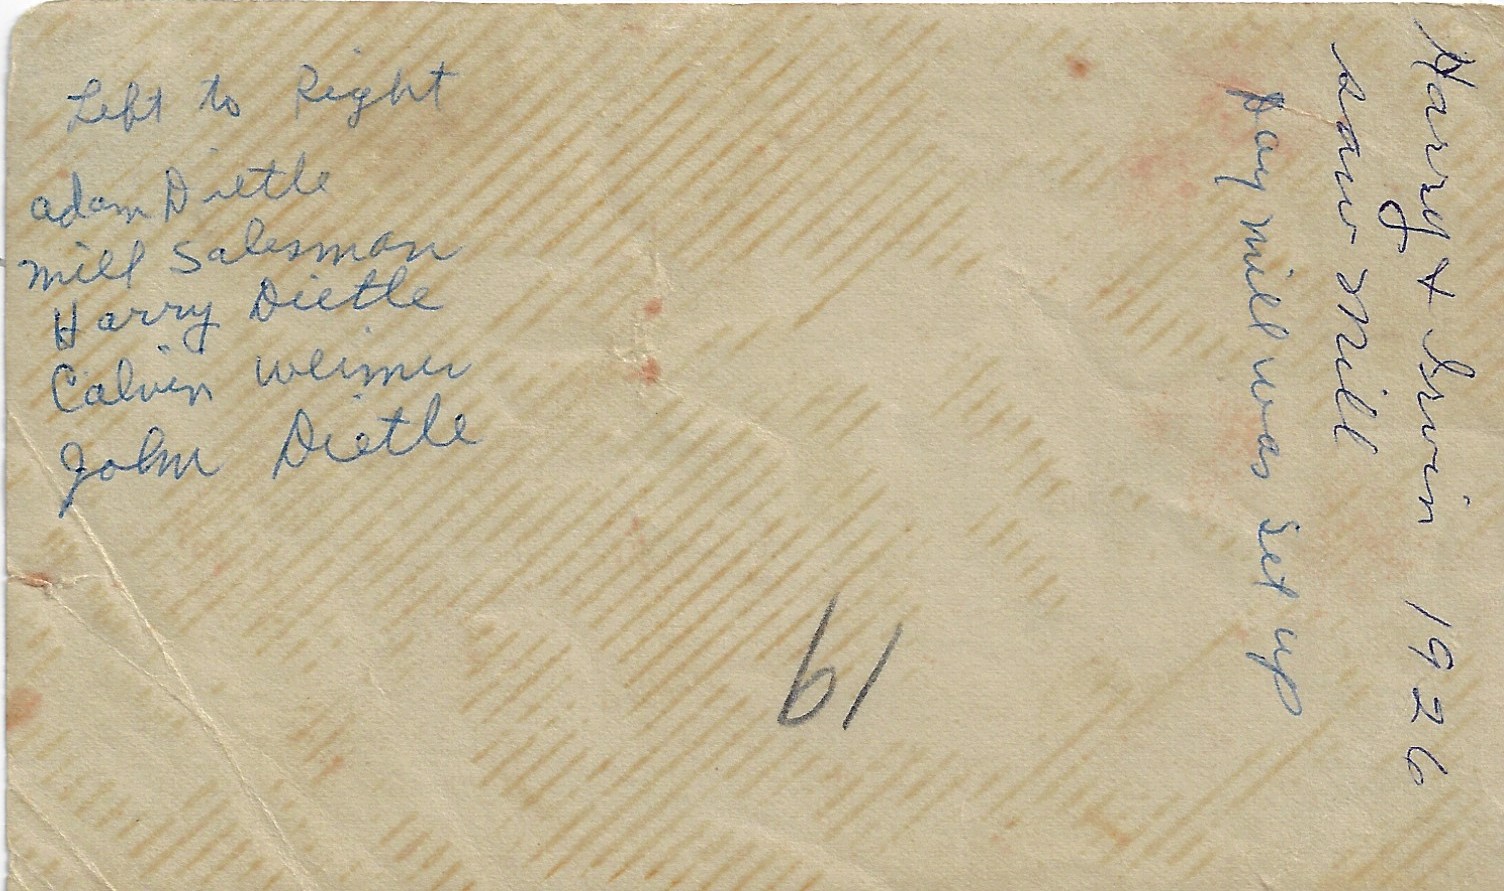 Left to Right
adam Dietle
mill Salesman
Harry Dietle
Calvin Weimer
John Dietle
Harry & Irvin 1926
saw Mill
Day mill was set up
61